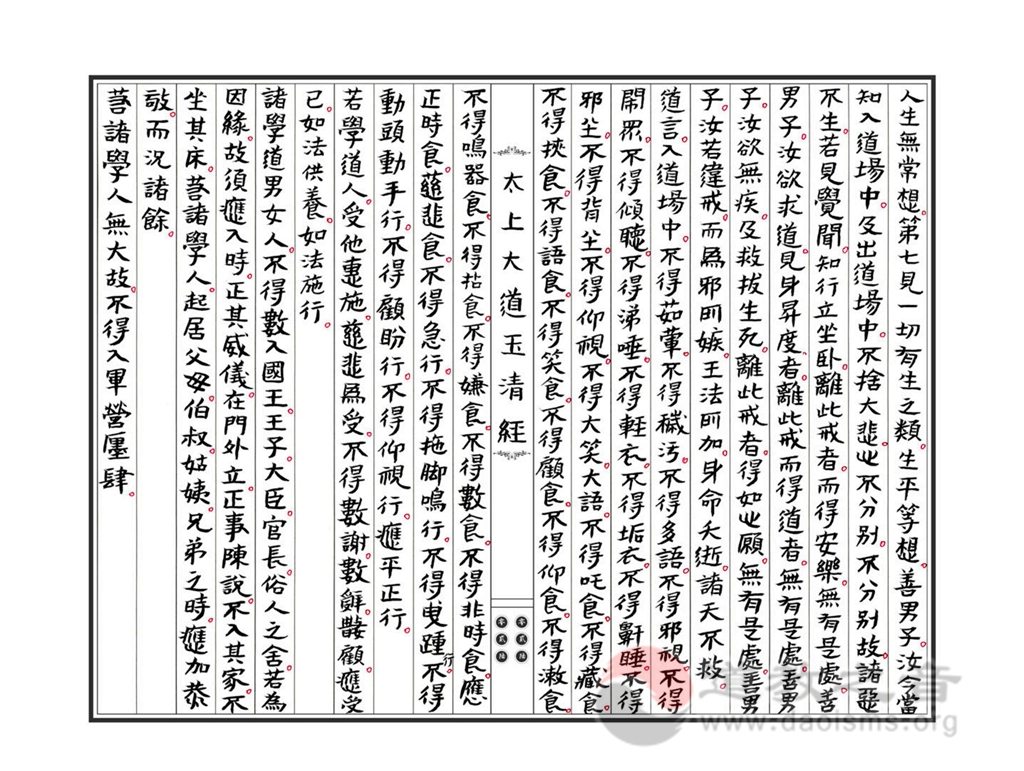 人生無常想。第七見一切有生之類。生平等想。善男子。汝今當
知入道場中。及出道場中。不捨大悲。心不分別。不分別故。諸惡
不生。若見覺聞。知行立坐臥。離此戒者。而得安樂。無有是處。善
男子。汝欲求道。見身昇度者。離此戒而得道者。無有是處。善男
子。汝欲無疾。及救拔生死。離此戒者。得如心願。無有是處。善男
子。汝若違戒。而為邪所嫉。王法所加。身命夭逝。諸天不救。
道言。入道場中。不得茹葷。不得穢污。不得多語。不得邪視。不得
鬧眾。不得傾聽。不得涕唾。不得輕衣。不得垢衣。不得鼾睡。不得
邪坐。不得背坐。不得仰視。不得大笑。大語。不得吒食。不得藏食。
不得挾食。不得語食。不得笑食。不得顧食。不得仰食。不得漱食。
太上大道玉清經
零貳陸
零貳陸
不得鳴器食。不得括食。不得嫌食。不得數食。不得非時食。應
正時食。慈悲食。不得急行。不得拖腳鳴行。不得曳踵行。不得
動頭動手行。不得顧盼行。不得仰視行。應平正行。
若學道人。受他惠施。慈悲為受。不得數謝。數觧。數顧。應受
已。如法供養。如法施行。
諸學道男女人。不得數入國王王子。大臣。官長。俗人之舍。若為
因緣。故須應入時。正其威儀。在門外立。正事陳說。不入其家。不
坐其床。若諸學人。起居父母。伯叔。姑姨。兄弟之時。應加恭
敬。而況諸餘。
若諸學人。無大故。不得入軍營。廛肆。